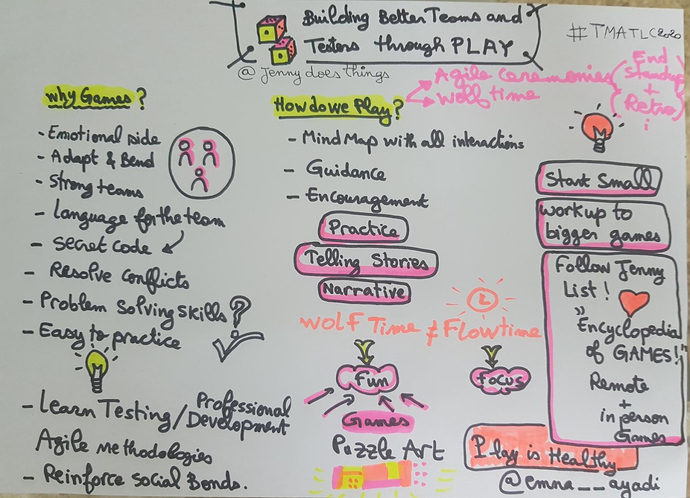 Building Better Teams and
Testers through PLAY
#TMATLC2020
@Jennydoesthings
Why Games?
- Emotional side
- Adapt & Bend
- Strong teams
- Language for the team
- Secret code
- Resolve Conflicts
- Problem Solving Skills ?
- Easy to practice
- Learn Testing / Professional
Development
Agile methodologies
- Reinforce Social Bonds.
How do we Play?
Agile Ceremonies
Wolf time
(End
Standup
+
Retro)
- Mind Map with all interactions
- Guidance
- Encouragement
Practice
Telling Stories
Narrative
Wolf Time ≠ Flowtime
Fun
Focus
Games
Puzzle Art
Start Small
work up to
bigger games
Follow Jenny
List!
"Encyclopedia
of GAMES!"
Remote
+
in person
Games
Play is Healthy
@emna__ayadi